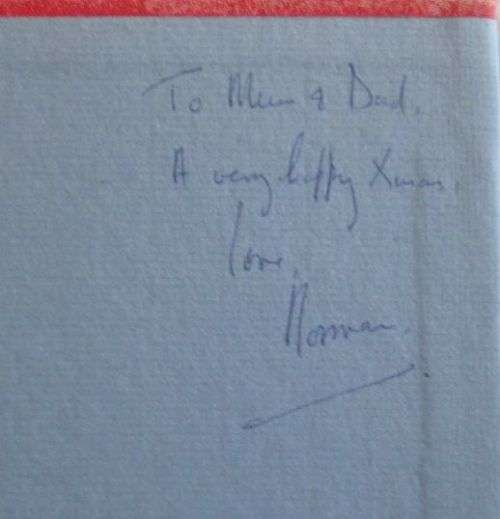 To Mum & Dad,
A very happy Xmas,
love,
Norman.